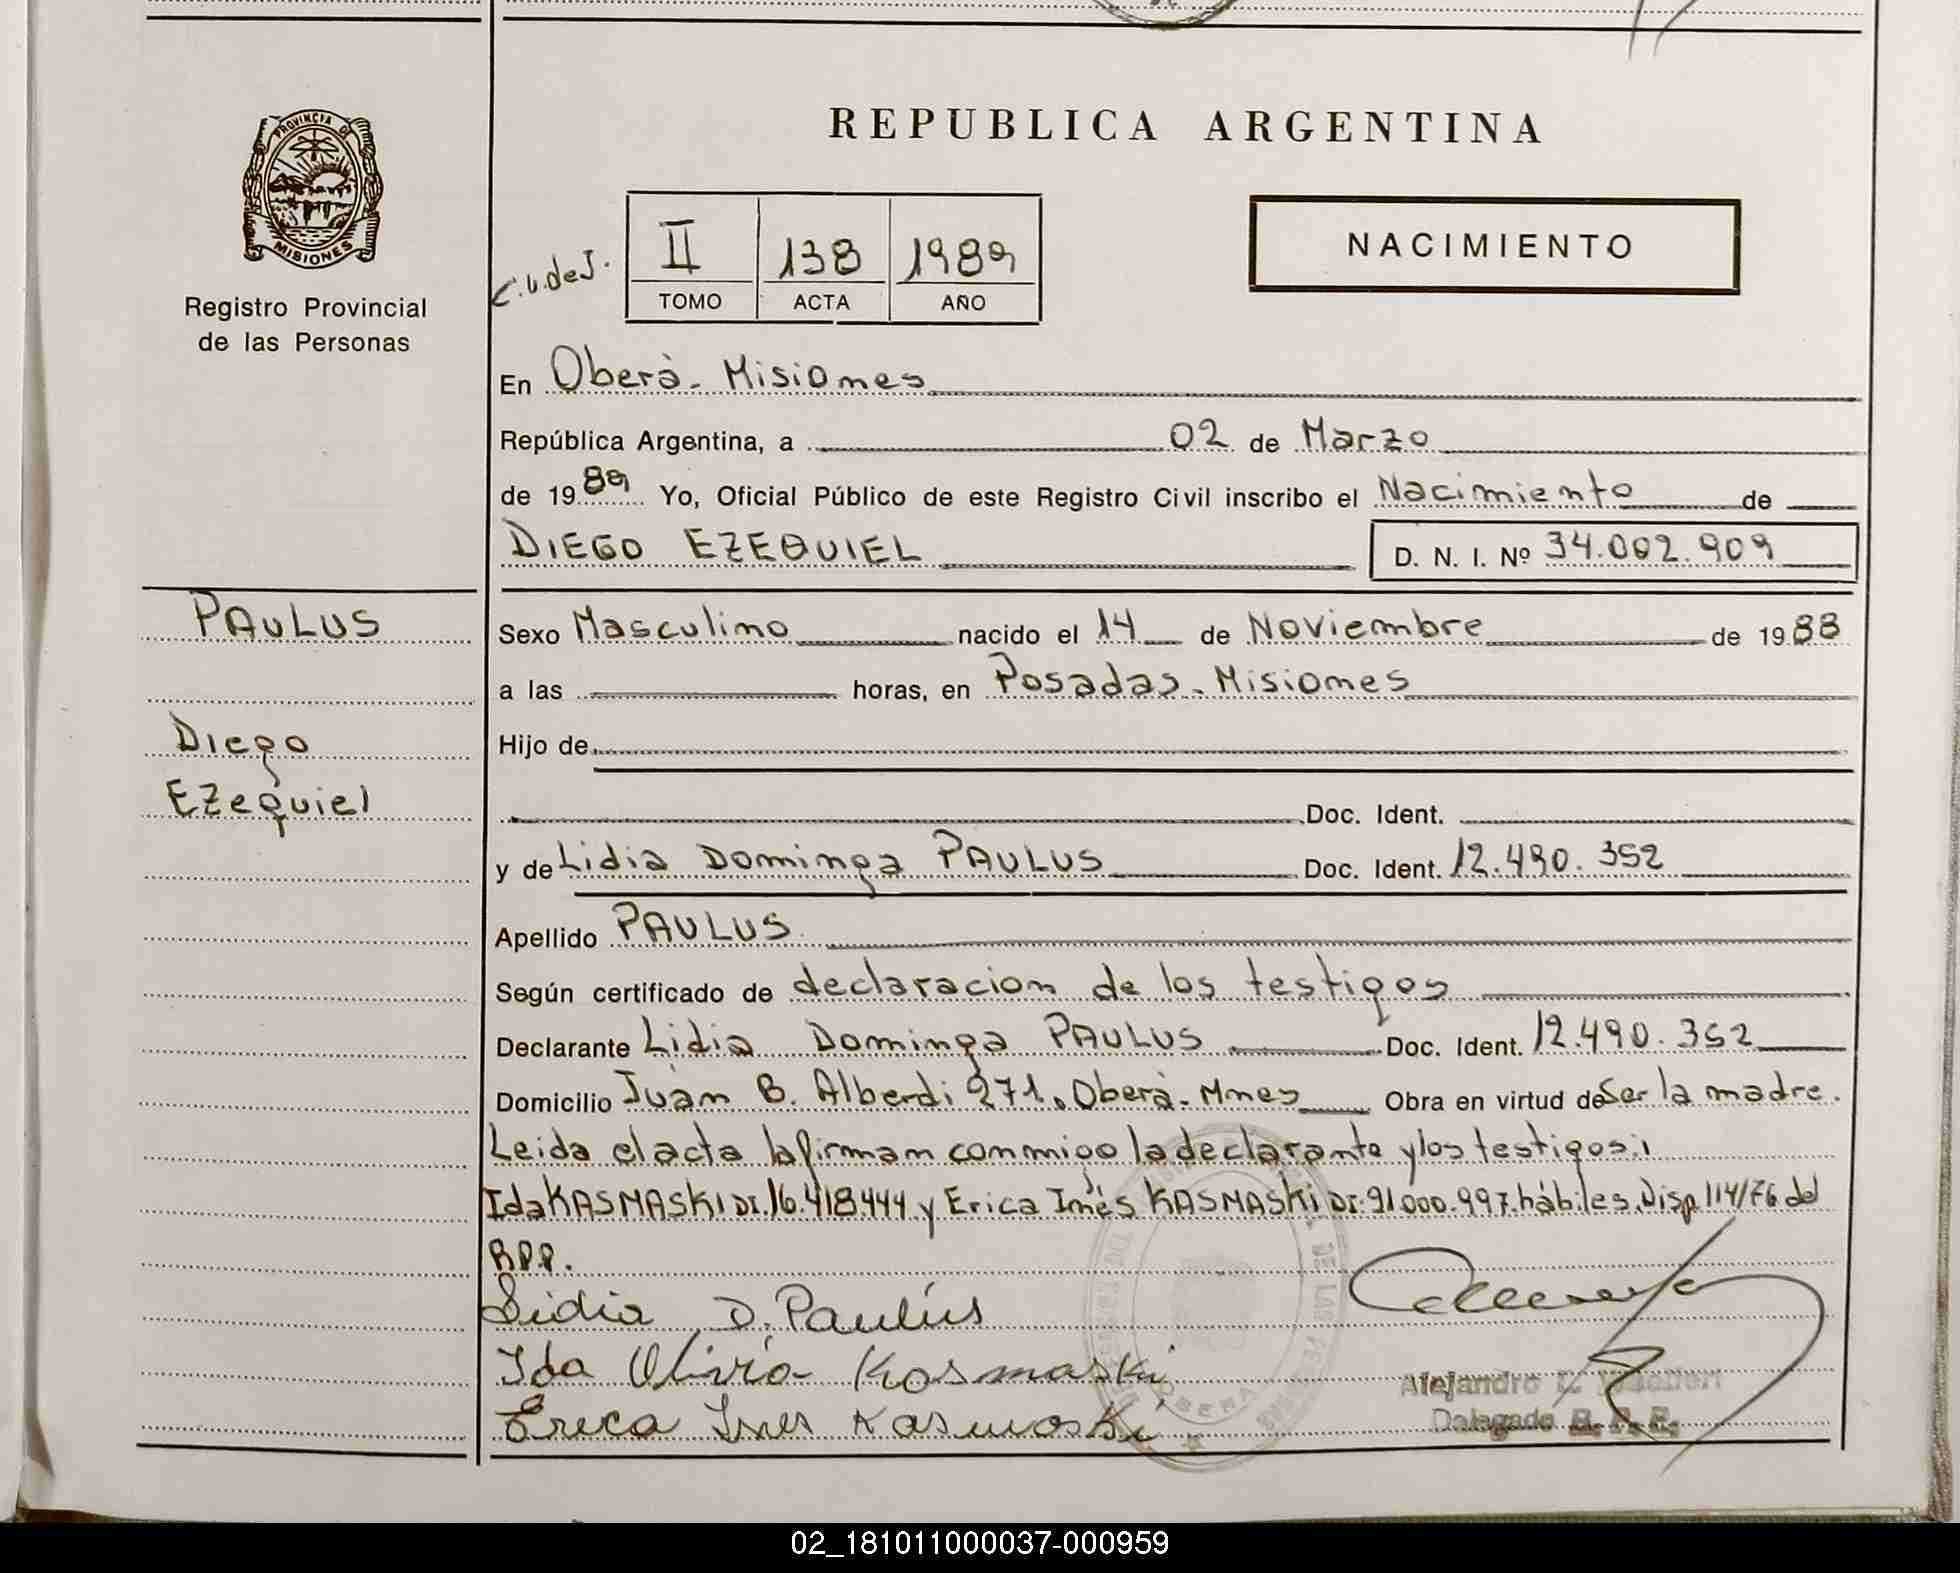 PROVINCIA DE
MISIONES
Registro Provincial
de las Personas
REPUBLICA ARGENTINA
C.U.deJ.
II
138
1989
TOMO
ACTA
AÑO
NACIMIENTO
En Oberà. Misiones
República Argentina, a 02 de Marzo
de 1989 Yo, Oficial Público de este Registro Civil inscribo el Nacimiento de
DIEGO EZEQUIEL D. N. I. Nº 34.002.909
PAULUS
Diego
Ezequiel
Sexo Masculino nacido el 14 de Noviembre de 1988
a las horas, en Posadas. Misiones
Hijo de
Doc. Ident.
y de Lidia Dominga PAULUS Doc. Ident. 12.490.352
Apellido PAULUS
Según certificado de declaracion de los testigos
Declarante Lidia Dominga PAULUS Doc. Ident. 12.490.352
Domicilio Juàn B. Alberdi 271. Oberà. Mnes Obra en virtud de Ser la madre.
Leida el acta la firman conmigo la declarante y los testigos:
Ida KASMASKI DI. 16.418.444 y Erica Inés KASMASKI DI: 91.000.997. hábiles. Disp. 114/76 del
RPP.
Lidia D. Paulus
Ida Olivia Kosmaski
Erica Ines Kasmoski
DE LAS
OBERA
Alejandro
Delegado R. P. P.
02_181011000037-000959